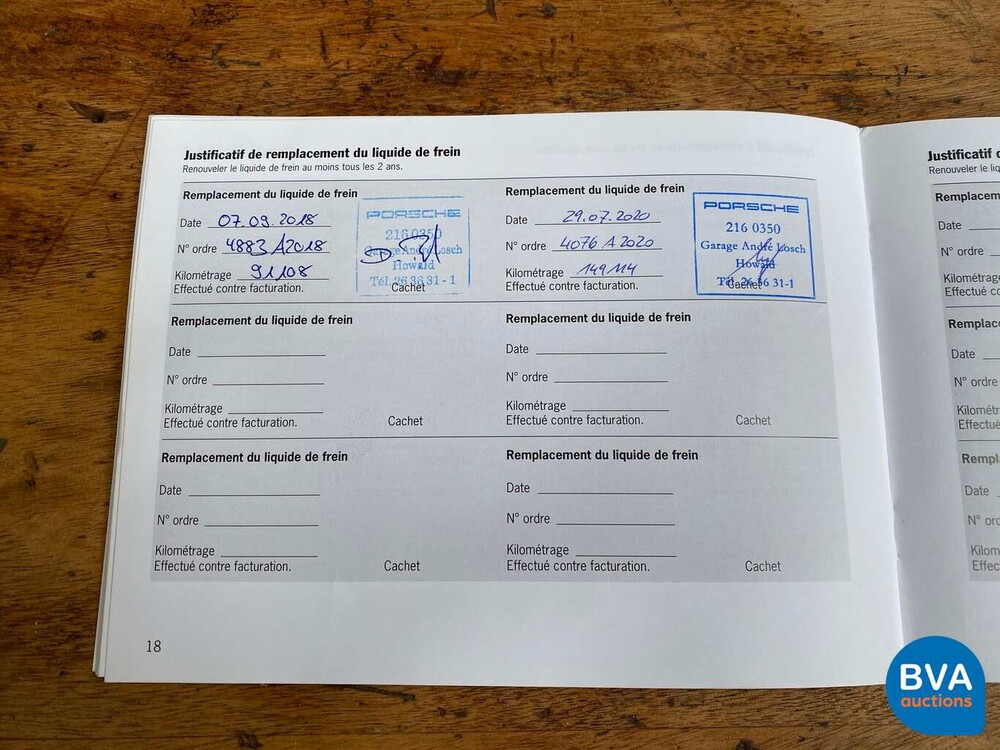 Justificatif de remplacement du liquide de frein
Renouveler le liquide de frein au moins tous les 2 ans.
Remplacement du liquide de frein
Date 07.09.2018
N° ordre 4883 A2018
Kilométrage 91108
Effectué contre facturation.
PORSCHE
216 0350
Garage André Losch
Howald
Tél. 26 36 31 - 1
Cachet
Remplacement du liquide de frein
Date 29.07.2020
N° ordre 4076 A 2020
Kilométrage 149114
Effectué contre facturation.
PORSCHE
216 0350
Garage André Losch
Howald
Tél. 26 36 31-1
Cachet
Remplacement du liquide de frein
Date
N° ordre
Kilométrage
Effectué contre facturation.
Cachet
Remplacement du liquide de frein
Date
N° ordre
Kilométrage
Effectué contre facturation.
Cachet
Remplacement du liquide de frein
Date
N° ordre
Kilométrage
Effectué contre facturation.
Cachet
Remplacement du liquide de frein
Date
N° ordre
Kilométrage
Effectué contre facturation.
Cachet
18
Justificatif
Renouveler le
Date
N° ordre
Date
N° ordre
Date
BVA
auctions